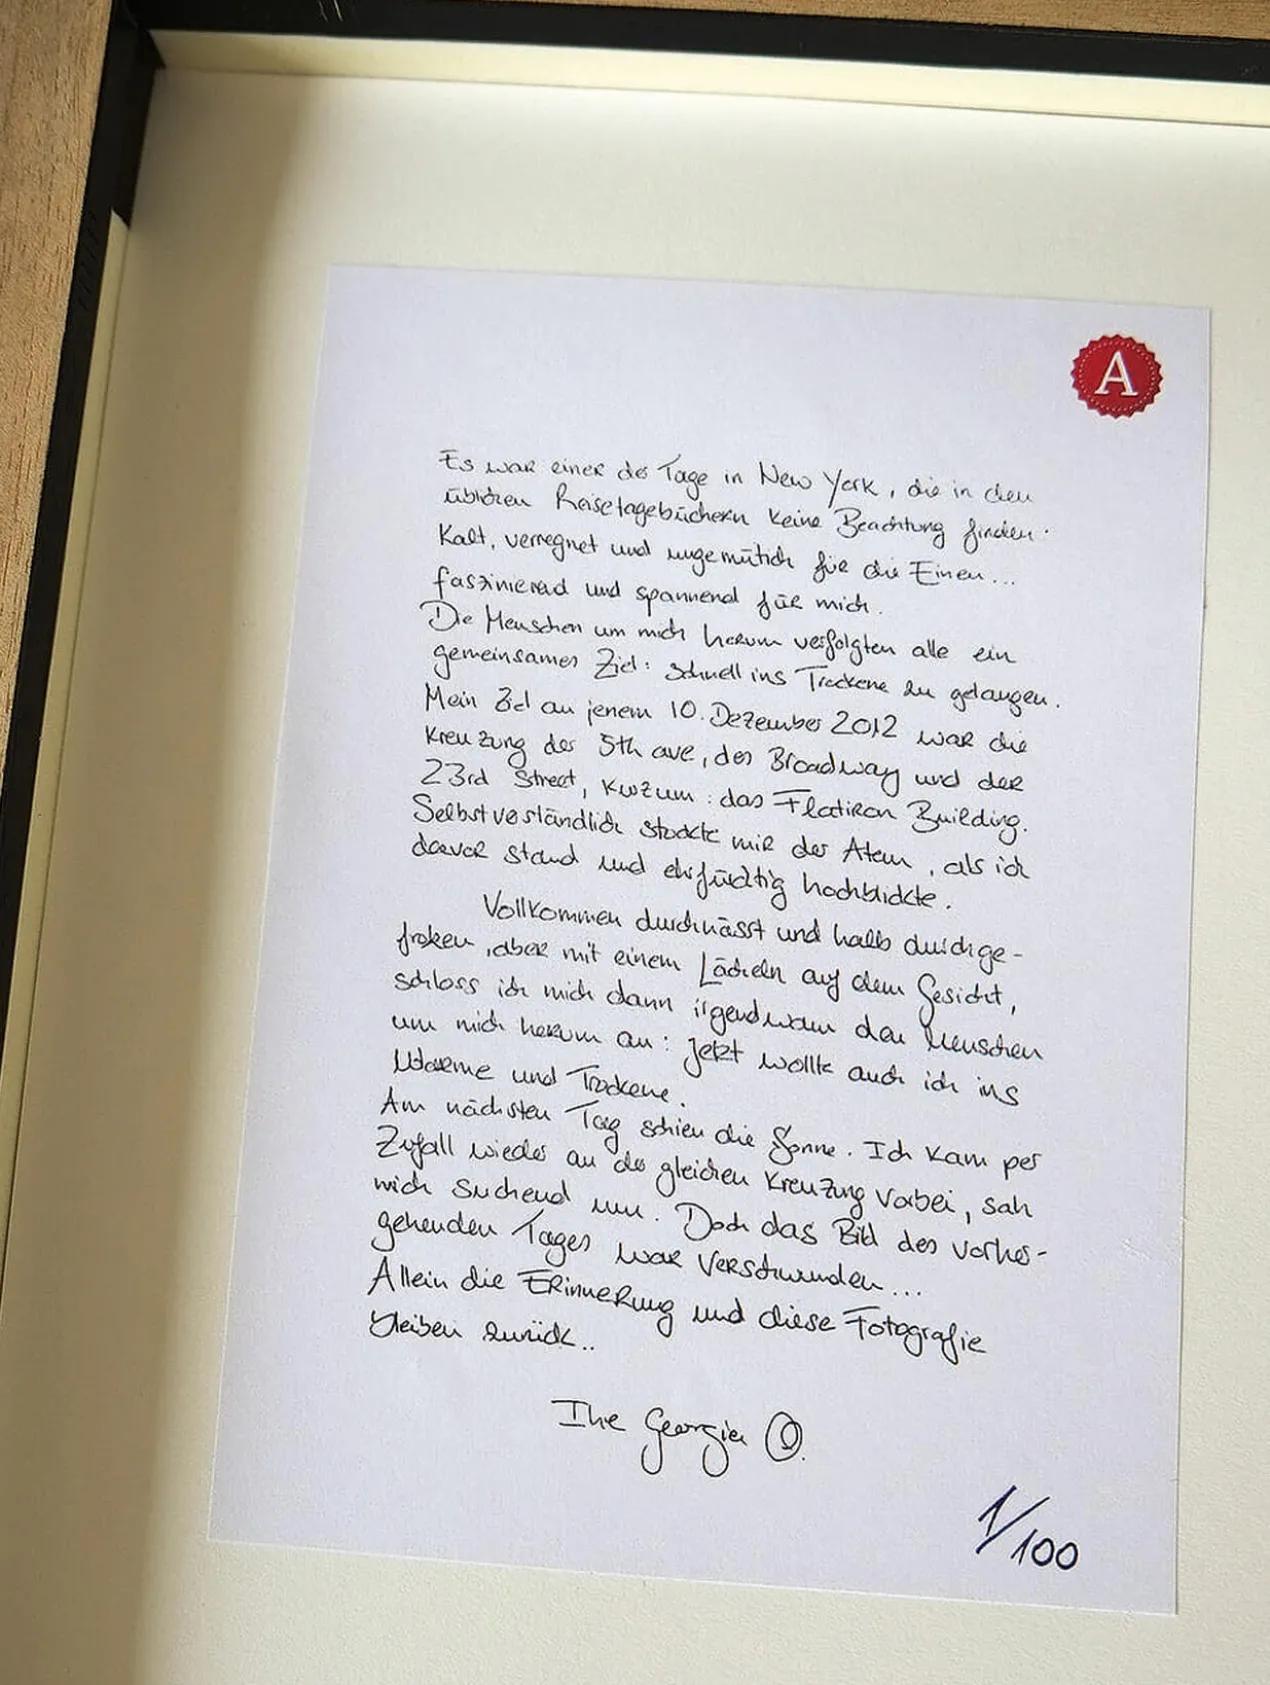 A
Es war einer der Tage in New York, die in den
üblichen Reisetagebüchern keine Beachtung finden.
Kalt, verregnet und ungemütlich für die Einen...
faszinierend und spannend für mich.
Die Menschen um mich herum verfolgten alle ein
gemeinsames Ziel: schnell ins Trockene zu gelangen.
Mein Ziel an jenem 10. Dezember 2012 war die
Kreuzung der 5th ave, des Broadway und der
23rd Street, kurzum: das Flatiron Building.
Selbstverständlich stockte mir der Atem, als ich
davor stand und ehrfürchtig hochblickte.
Vollkommen durchnässt und halb durchge-
froren, aber mit einem Lächeln auf dem Gesicht,
schloss ich mich dann irgendwann den Menschen
um mich herum an: Jetzt wollte auch ich ins
Warme und Trockene.
Am nächsten Tag schien die Sonne. Ich kam per
Zufall wieder an der gleichen Kreuzung vorbei, sah
mich suchend um. Doch das Bild des vorher-
gehenden Tages war verschwunden...
Allein die Erinnerung und diese Fotografie
bleiben zurück..
Ihre Georgia
1/100